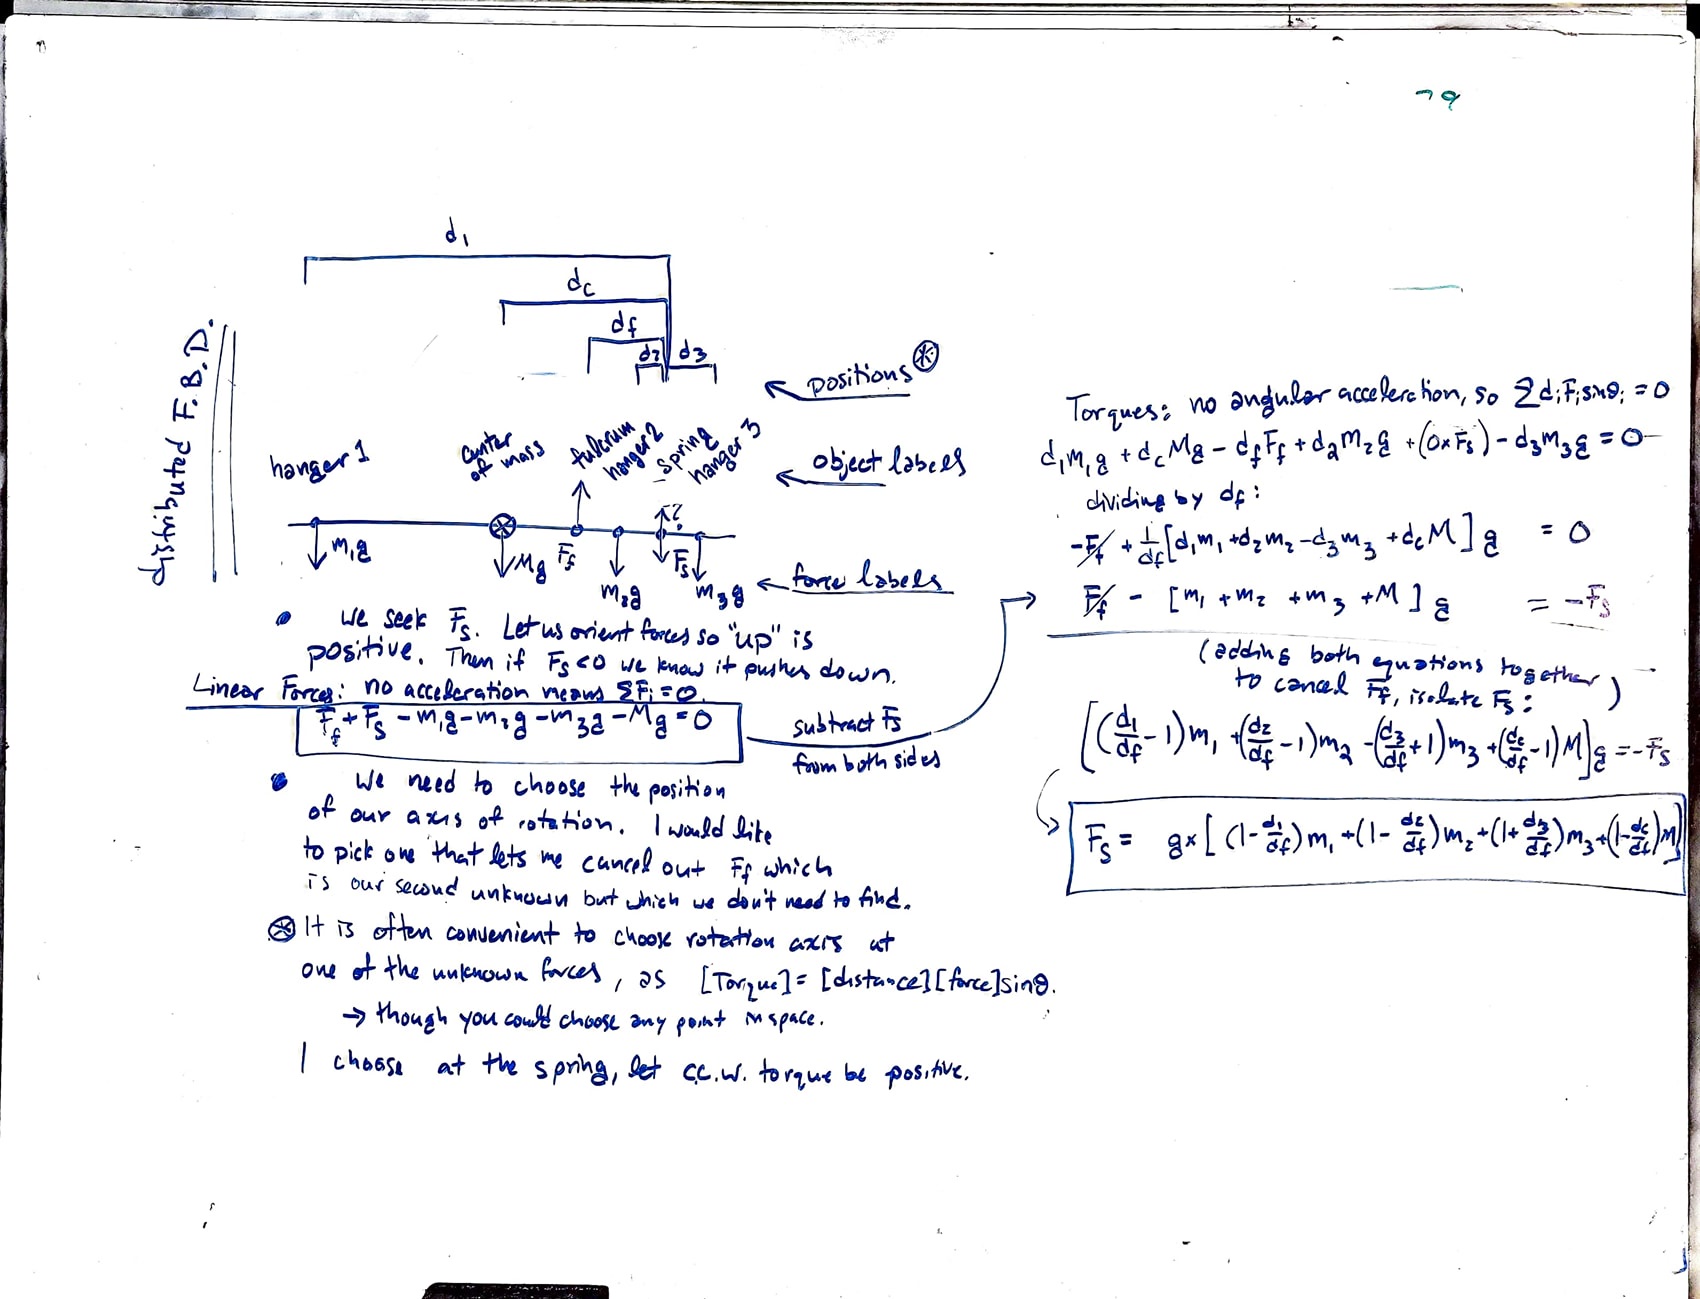 79
d₁
d_c
d_f
d₂ d₃
positions ⊛
distributed F.B.D.
hanger 1
center of mass
fulcrum
hanger 2
spring
hanger 3
object labels
?
m₁g
Mg
F_f
m₂g
F_s
m₃g
force labels
• We seek F_s. Let us orient forces so "up" is
positive. Then if F_s<0 we know it pushes down.
Linear Forces: no acceleration means ΣF_i=0.
F_f + F_s - m₁g - m₂g - m₃g - Mg = 0
subtract F_s
from both sides
• We need to choose the position
of our axis of rotation. I would like
to pick one that lets me cancel out F_f which
is our second unknown but which we don't need to find.
⊛ It is often convenient to choose rotation axis at
one of the unknown forces, as [Torque]=[distance][force]sinθ.
→ though you could choose any point in space.
I choose at the spring, let c.c.w. torque be positive.
Torques: no angular acceleration, so Σd_iF_i sinθ_i = 0
d₁m₁g + d_cMg - d_fF_f + d₂m₂g + (0×F_s) - d₃m₃g = 0
dividing by d_f:
-F_f + 1/d_f [d₁m₁ + d₂m₂ - d₃m₃ + d_cM] g = 0
F_f - [m₁ + m₂ + m₃ + M] g = -F_s
(adding both equations together
to cancel F_f, isolate F_s:)
[(d₁/d_f - 1)m₁ + (d₂/d_f - 1)m₂ - (d₃/d_f + 1)m₃ + (d_c/d_f - 1)M]g = -F_s
F_s = g×[(1 - d₁/d_f)m₁ + (1 - d₂/d_f)m₂ + (1 + d₃/d_f)m₃ + (1 - d_c/d_f)M]